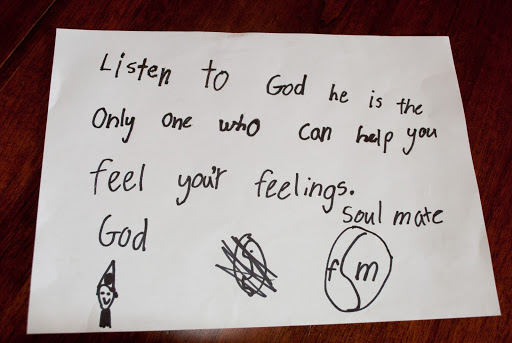 Listen to God he is the
Only one who can help you
feel you'r feelings.
soul mate
God
f m